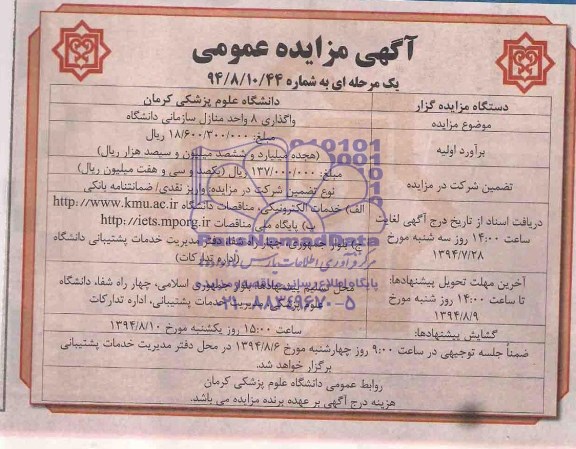 آگهی مزایده عمومی
یک مرحله ای به شماره ۹۴/۸/۱۰/۴۴
دستگاه مزایده گزار
دانشگاه علوم پزشکی کرمان
موضوع مزایده
واگذاری ۸ واحد منازل سازمانی دانشگاه
برآورد اولیه
مبلغ: ۱۸/۶۰۰/۳۰۰/۰۰۰ ریال
(هجده میلیارد و ششصد میلیون و سیصد هزار ریال)
تضمین شرکت در مزایده
مبلغ: ۱۳۷/۰۰۰/۰۰۰ ریال (یکصد و سی و هفت میلیون ریال)
نوع تضمین شرکت در مزایده: واریز نقدی/ ضمانتنامه بانکی
دریافت اسناد از تاریخ درج آگهی لغایت
ساعت ۱۴:۰۰ روز سه شنبه مورخ
۱۳۹۴/۷/۲۸
الف) خدمات الکترونیکی، مناقصات دانشگاه http://www.kmu.ac.ir
ب) پایگاه ملی مناقصات http://iets.mporg.ir
ج) بلوار جمهوری، چهار راه شفا، دفتر مدیریت خدمات پشتیبانی دانشگاه
(اداره تدارکات)
آخرین مهلت تحویل پیشنهادها:
تا ساعت ۱۴:۰۰ روز شنبه مورخ
۱۳۹۴/۸/۹
محل تسلیم پیشنهادها: بلوار جمهوری اسلامی، چهار راه شفا، دانشگاه
علوم پزشکی، مدیریت خدمات پشتیبانی، اداره تدارکات
گشایش پیشنهادها:
ساعت ۱۵:۰۰ روز یکشنبه مورخ ۱۳۹۴/۸/۱۰
ضمناً جلسه توجیهی در ساعت ۹:۰۰ روز چهارشنبه مورخ ۱۳۹۴/۸/۶ در محل دفتر مدیریت خدمات پشتیبانی
برگزار خواهد شد.
روابط عمومی دانشگاه علوم پزشکی کرمان
هزینه درج آگهی بر عهده برنده مزایده می باشد.
ParsNamadData
۰۲۱-۸۸۳۴۹۶۷۰-۵